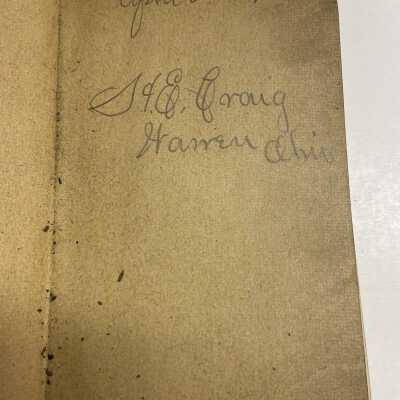 S & E. Craig
Warren Ohio